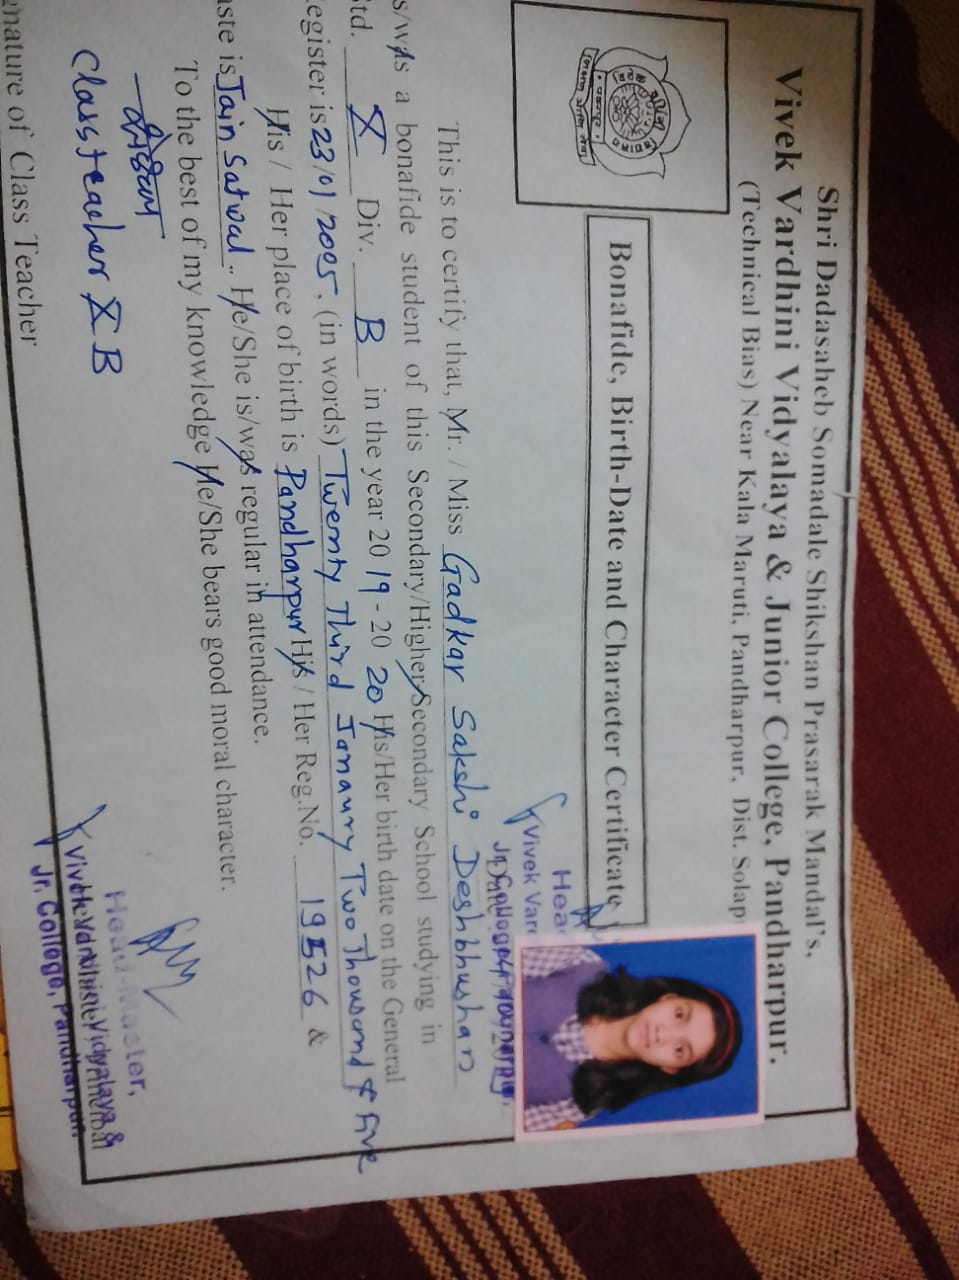 Shri Dadasaheb Somadale Shikshan Prasarak Mandal's,
Vivek Vardhini Vidyalaya & Junior College, Pandharpur.
(Technical Bias) Near Kala Maruti, Pandharpur, Dist. Solap
Bonafide, Birth-Date and Character Certificate
Hea
Vivek Vard
This is to certify that, Mr. / Miss Gadkar Sakshi Deshbhushan
s/was a bonafide student of this Secondary/Higher Secondary School studying in
Std. X Div. B in the year 2019-20 20 His/Her birth date on the General
egister is 23/01/2005, (in words) Twenty Third Janaury Two Thousand & five
His / Her place of birth is Pandharpur His / Her Reg.No. 19526 &
aste is Jain Satwal.. He/She is/was regular in attendance.
To the best of my knowledge He/She bears good moral character.
Class teacher X B
Head-Master,
Vivek Vardhini Vidyalaya &
Jr. College, Pandharpur.
gnature of Class Teacher